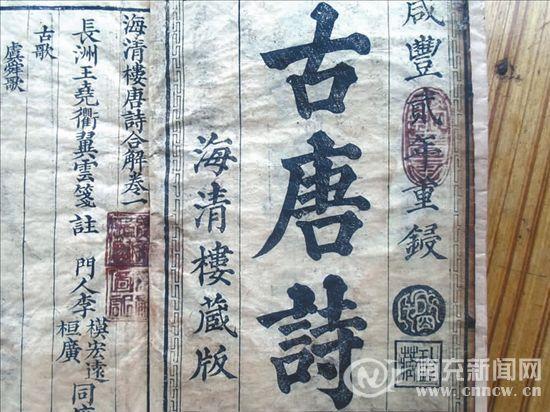 咸豐貳年重鋟
古唐詩
海清樓藏版
海清樓唐詩合解卷一
長洲王堯衢翼雲箋註 門人李
模宏遠
桓廣
同
古歌
虞舜歌
南充新闻网
www.cnncw.cn